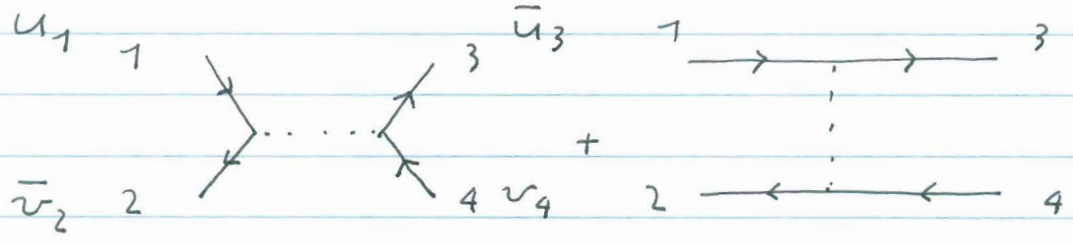 u₁ 1 3 ū₃ 1 3
+
v̄₂ 2 4 v₄ 2 4